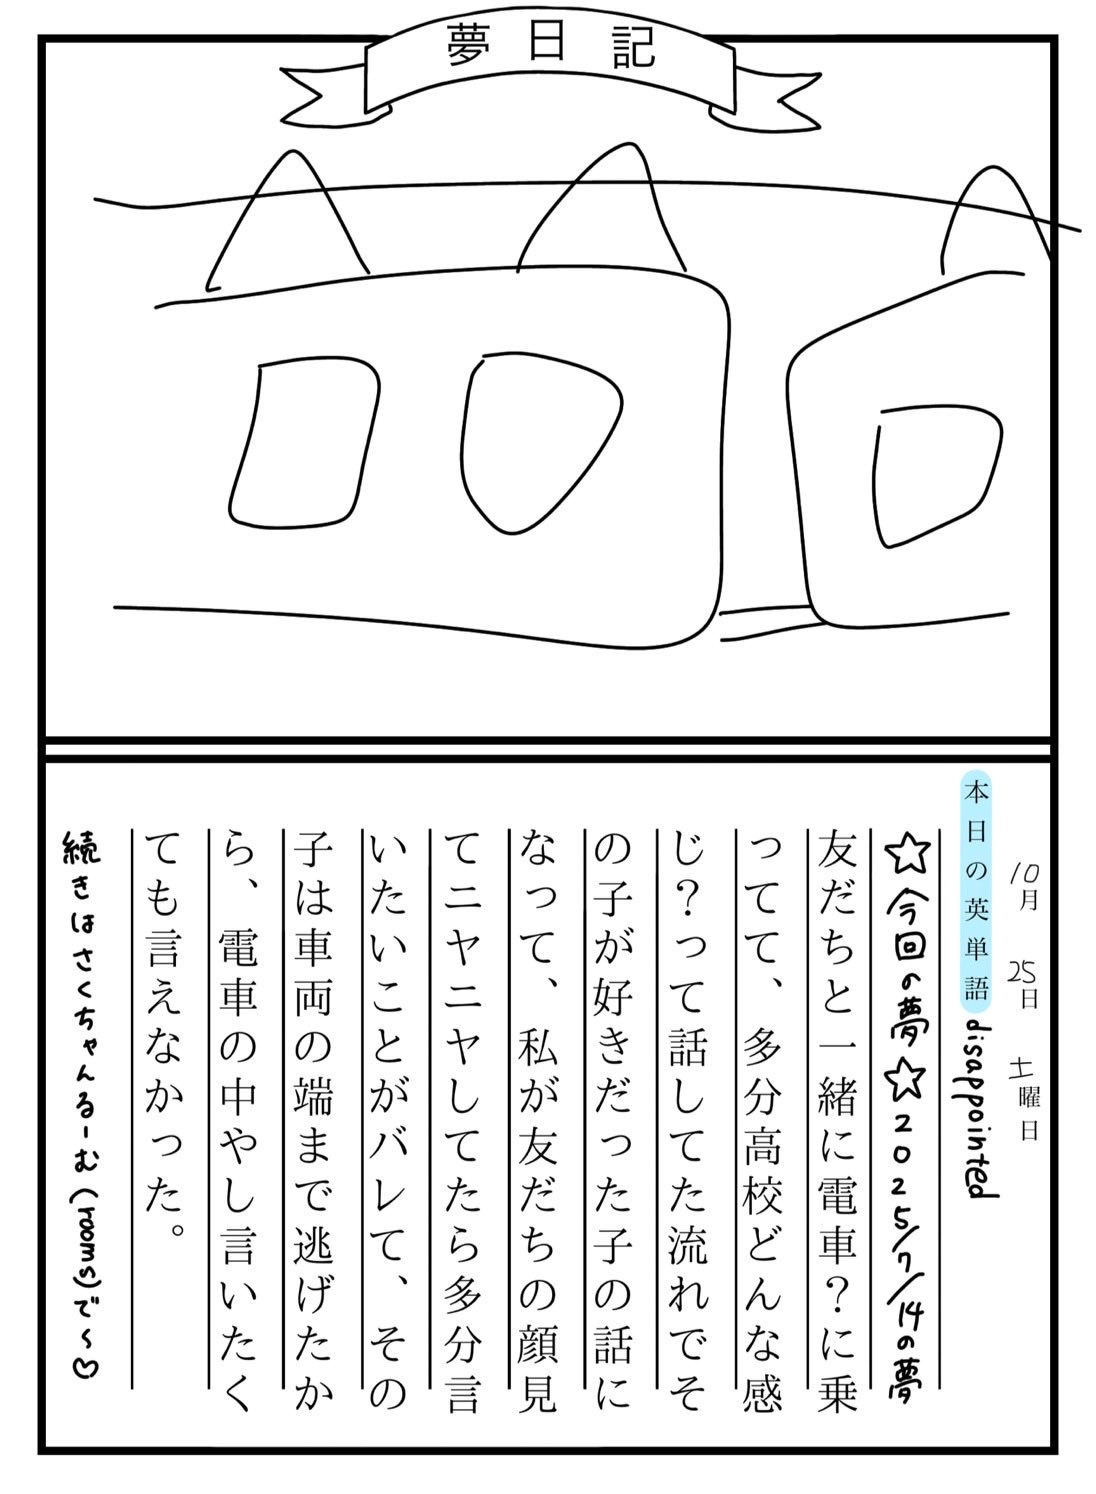 夢日記
10月 25日 土曜日
本日の英単語 disappointed
☆今回の夢☆2025/7/14の夢
友だちと一緒に電車？に乗
ってて、多分高校どんな感
じ？って話してた流れでそ
の子が好きだった子の話に
なって、私が友だちの顔見
てニヤニヤしてたら多分言
いたいことがバレて、その
子は車両の端まで逃げたか
ら、電車の中やし言いたく
ても言えなかった。
続きはさくちゃんるーむ(rooms)で〜♡